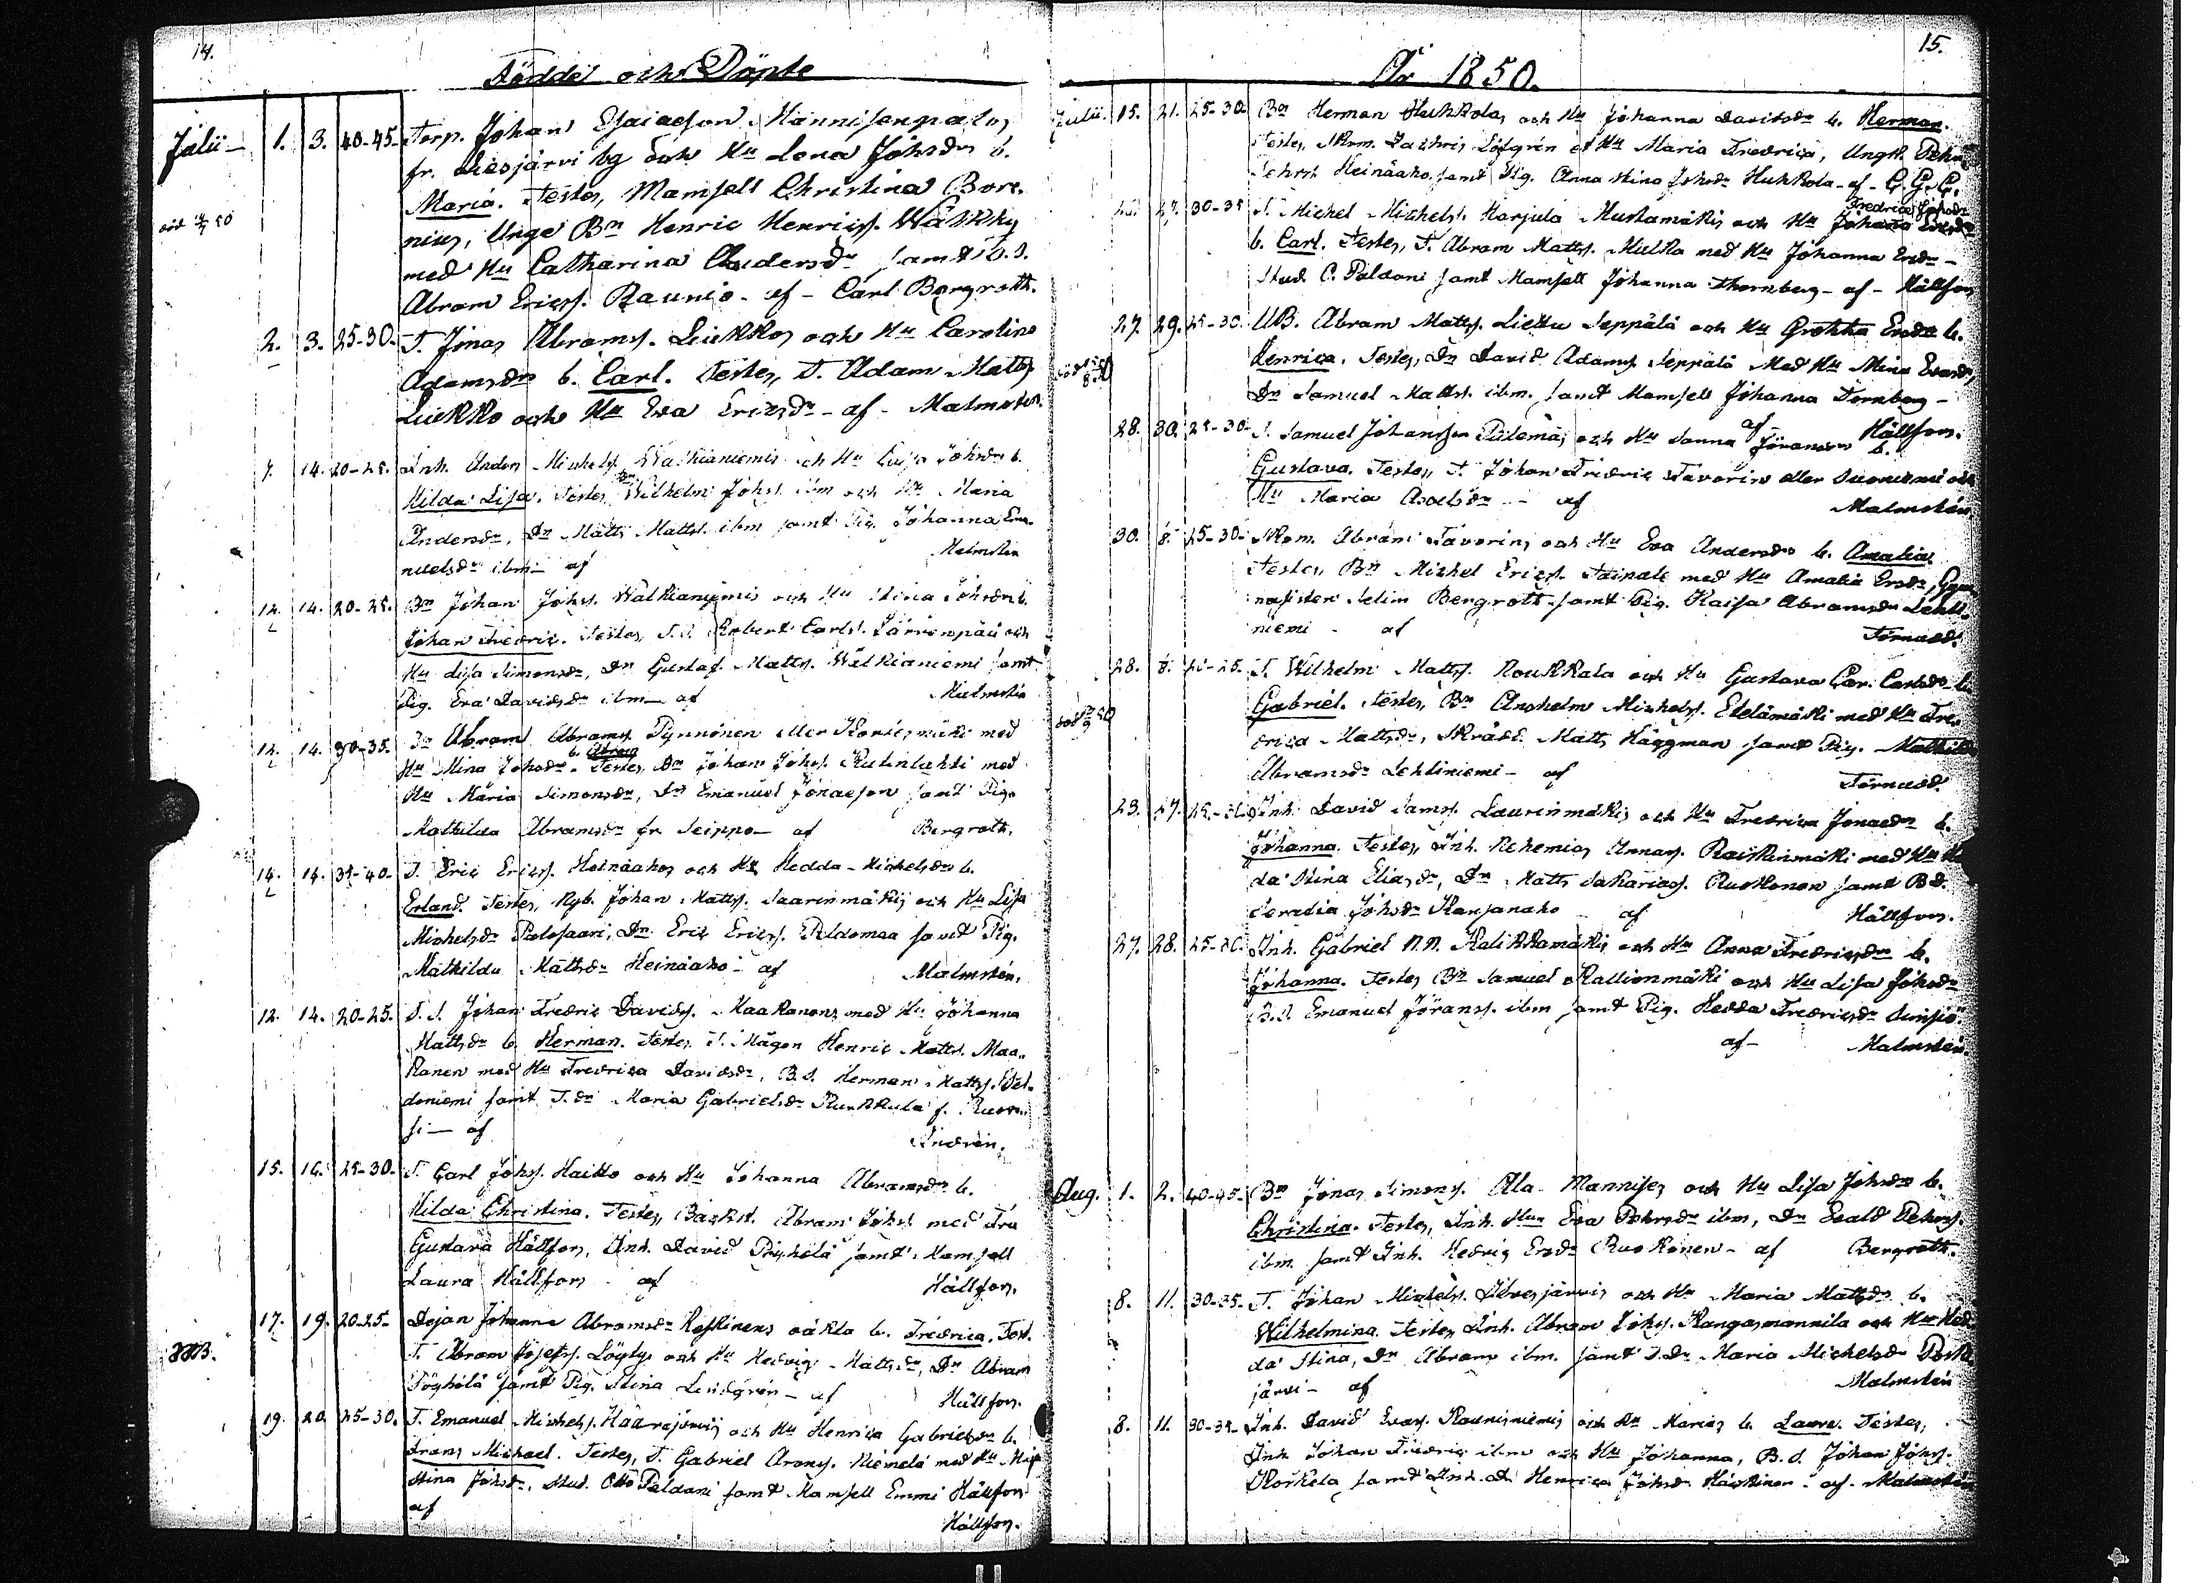 14.
Födde och Döpte
Julii 1. 3. 40-45. Torp. Johan Esaiaeson Männisenpalo,
fr. Liesjärvi by och Hu Lena Johsdr b.
Maria. Testes, Mamsell Christina Bore-
nius, Unge Bn Henric Henricss. Wäkky
död 50
med Hu Catharina Andersdr samt b.s.
Abram Ericss. Raunio - af - Carl Bergroth.
2. 3. 25-30. T. Jonas Abramss. Liukko, och Hu Carolina
Adamsdr b. Carl. Testes, T. Adam Matts
Liukko och Hu Eva Ericsdr - af - Malmstén.
7. 14. 20-25. Inh. Anders Michelss. Walkianiemi och Hu Lisa Johsdr b.
Hilda Lisa. Testes, Wilhelm Johss. ibm och Hu Maria
Andersdr, Dr Matts Mattss. ibm samt Pig. Johanna Ema-
nuelsdr ibm - af Malmstén
12. 14. 20-25. Bn Johan Johss. Walkianiemi och Hu Stina Johsdr b.
Johan Fredric. Testes, T.S. Robert Carlss. Järvenpää och
Hu Lisa Simonsdr, Dr Gustaf Mattss. Walkianiemi samt
Pig. Eva Davidsdr ibm - af Malmstén
12. 14. 30-35. Dr Abram Abramss. Pynnönen eller mäki med
b. Abram
Hu Mina Johsdr. Testes, Dr Johan Johss. Kalinlahti med
Hu Maria Simonsdr, Dr Emanuel Jonaeson samt Pig.
Mathilda Abramsdr fr Seippo - af Bergroth.
14. 14. 35-40. T. Eric Ericss. Heinäaho, och Hu Hedda Michelsdr b.
Erland. Testes, Nyb. Johan Mattss. Saarinmäki, och Hu Lisa
Michelsdr Palosaari, Dr Eric Ericss. Peldomaa samt Pig.
Mathilda Mattsdr Heinäaho - af Malmstén.
12. 14. 20-25. T.S. Johan Fredric Davidss. Maakanen, med Hu Johanna
Mattsdr b. Herman. Testes T. Mågen Henric Mattss. Maa-
kanen med Hu Fredrica Davidsdr, B.S. Herman Mattss. Pel-
doniemi samt T.dr Maria Gabrielsdr Kurkkula f.
si - af
15. 16. 25-30. T. Carl Johss. Haitto och Hu Johanna Abramsdr b.
Hilda Christina. Testes, Abram Johss. med Fru
Gustava Hällfors, Inh. David Pöyhölä samt Mamsell
Laura Hällfors af Hällfors.
17. 19. 20-25. Dejan Johanna Abramsdr Koskinens oäkta b. Fredrica. Test.
T. Abram Josefss. Löyty, och Hu Hedvig Mattsdr, Dr Abram
Pöyhölä samt Pig. Stina Lindgrén - af Hällfors.
19. 20. 25-30. T. Emanuel Michelss. Haarajärvi, och Hu Henrica Gabrielsdr b.
Frans Michael. Testes, T. Gabriel Aronss. Niemelä med Hu Maja
Stina Johsdr, Stud. Otto Paldani samt Mamsell Emmi Hällfors
af Hällfors.
15.
År 1850.
Julii. 15. 21. 25-30. Bn Herman Huhkola, och Hu Johanna Davidsdr b. Herman.
Testes, Zachris Löfgrén et Hu Maria Fredrica, Ungk. Petter
Heinäaho, samt Pig. Anna Stina Johsdr Huhkola - af - C.G.C.
27. 30-35 T. Michel Michelss. Harjula Mustamäki, och Hu Fredrica Johsdr
b. Carl. Testes, T. Abram Mattss. Hulka med Hu Johanna Ersdr -
Stud. C. Paldani samt Mamsell Johanna Thornberg - af - Hällfors
27. 29. 25-30. UB. Abram Mattss. Liettu Seppälä och Hu Gretha Ersdr b.
Henrica. Testes, Dr David Adamss. Seppälä med Hu Mina Evasdr,
Dr Samuel Mattss. ibm. samt Mamsell Johanna Tornberg -
af Hällfors.
28. 30. 25-30. T. Samuel Johansson Pitlomäj och Hu Sanna Göransdr b.
Gustava. Testes, T. Johan Fredric Tavorin eller Suoniemi och
Hu Maria Axelsdr - af Malmstén
30. 25-30. Abram Favorin, och Hu Eva Andersdr b. Amalia.
Testes, Bn Michel Ericss. Taipale med Hu Amalia Ersdr, Gym-
nasisten Selim Bergroth samt Pig. Kaisa Abramsdr Lehti-
niemi - af Törnudd.
28. 20-25. T. Wilhelm Mattss. Noukkala och Hu Gustava Car. Carlsdr b.
Gabriel. Testes, Bn Anshelm Michelss. Etelämäki med Hu Fre-
drica Mattsdr, Skrädd. Matts Häggman samt Pig. Mathilda
Abramsdr Lehtiniemi - af Törnudd.
23. 27. Inh. David Samss. Laurinmäki, och Hu Fredrica Jonaedr b.
Johanna. Testes, Inh. Nehemias Annass. Raiskinmäki med Hu He-
da Stina Eliasdr, Dr Matts Sakariass. Ruokonen samt B.d.
Johsdr Kanganaho - af Hällfors.
27. 28. 25-26. Inh. Gabriel N.N. Kalikkamäki, och Hu Anna Fredricsdr b.
Johanna. Testes Bn Samuel Kallionmäki och Hu Lisa Johsdr
B.S. Emanuel Jöranss. ibm samt Pig. Hedda Fredricsdr
af - Malmstén.
Aug. 1. 2. 40-45. Bn Jonas Simonss. Ala-Mannise, och Hu Lisa Johsdr b.
Christina. Testes, Inh. Hu Eva Pehrsdr ibm, Dr Evald Pehrss.
ibm. samt Inh. Hedvig Ersdr Ruokonen - af Bergroth.
8. 11. 30-35. T. Johan Michelss. Ilvesjärvi, och Hu Maria Mattsdr b.
Wilhelmina. Testes, Inh. Abram Johss. Kangasmannila och Hu Hed-
da Stina, Dr Abram ibm. samt T.Dr Maria Michelsdr
järvi - af Malmstén
8. 11. 30-35. Inh. David Evass. Kauniiniemi, och Hu Maria, b. Laura. Testes,
Inh. Johan Fredric ibm och Hu Johanna, B.S. Johan Johss.
Korkela samt Inh. D. Henrica Johsdr Häkkinen - af - Malmstén